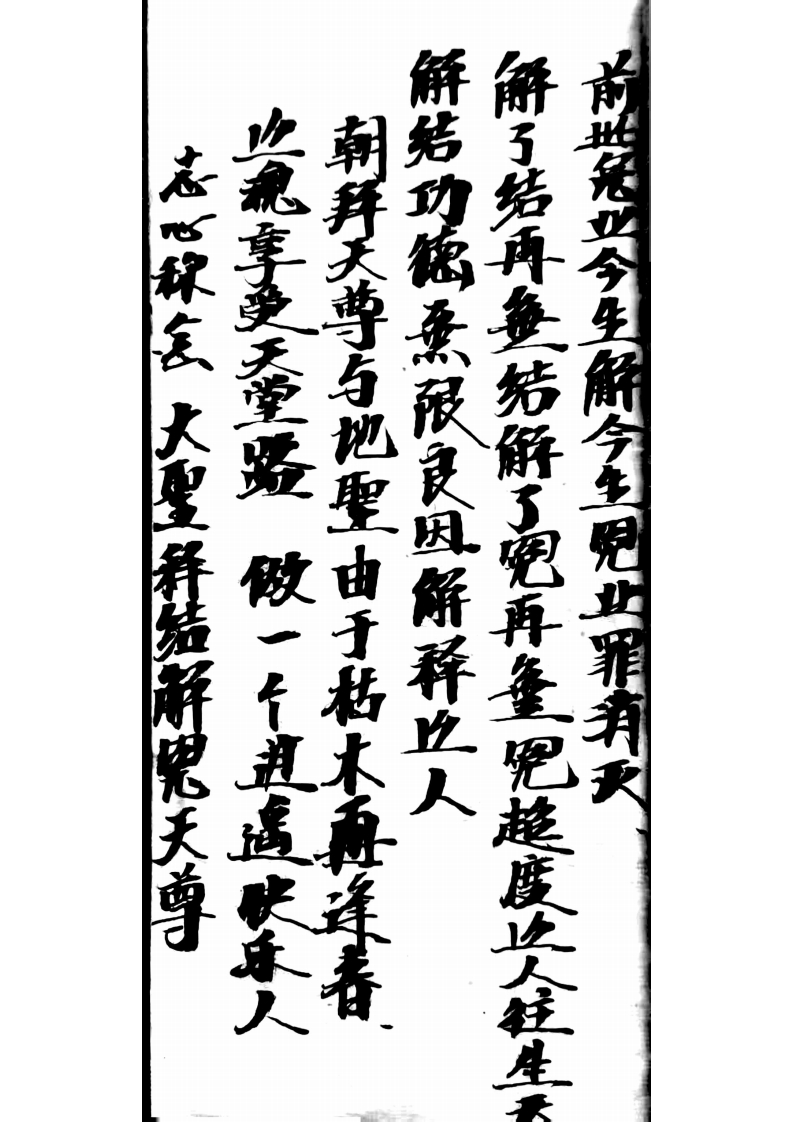 前世冤业今生解今生冤业罪消灭
解了结再無结解了冤再無冤超度亡人往生天
解结功德無限良因解释亡人
朝拜天尊与地聖由于枯木再逢春
亡魂享受天堂路 做一个逍遥快乐人
志心称念 大聖释结解冤天尊